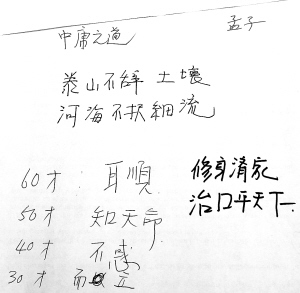 中庸之道
孟子
泰山不辞土壤
河海不択細流
60才 耳順
50才 知天命
40才 不惑
30才 而立
修身清家
治口平天下